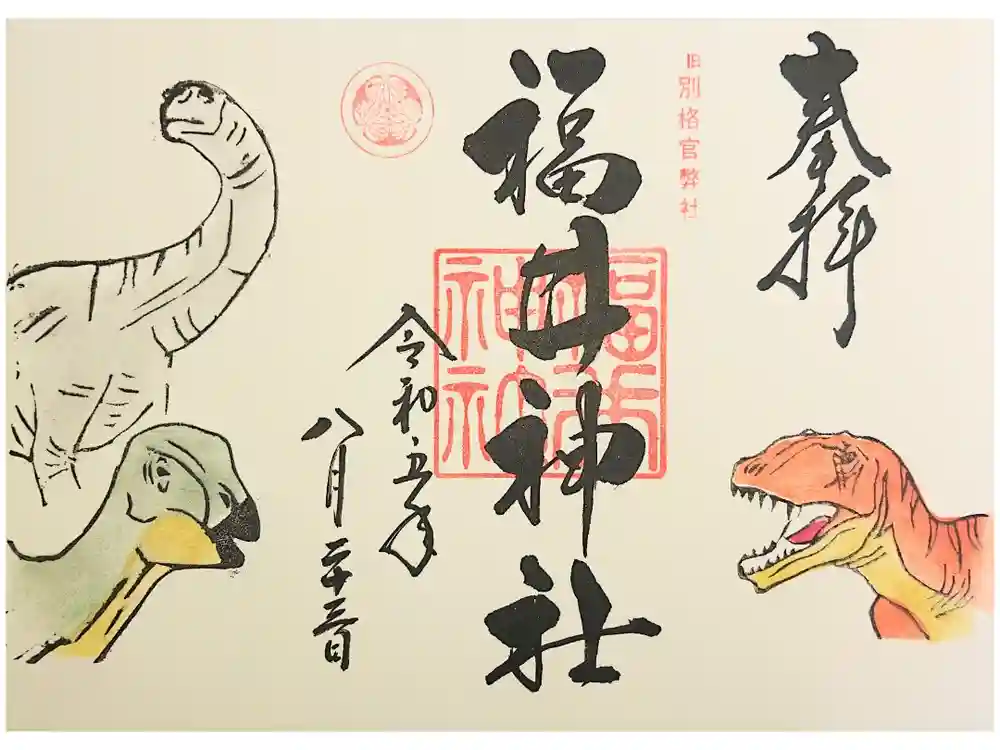 奉拝
旧別格官弊社
福井神社
福井神社
令和五年
八月二十三日